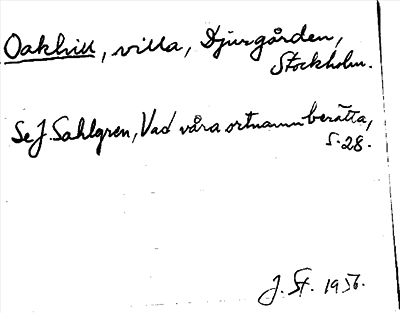 Oakhill, villa, Djurgården,
Stockholm.
Se J. Sahlgren, Vad våra ortnamn berätta,
s. 28.
J. St. 1956.